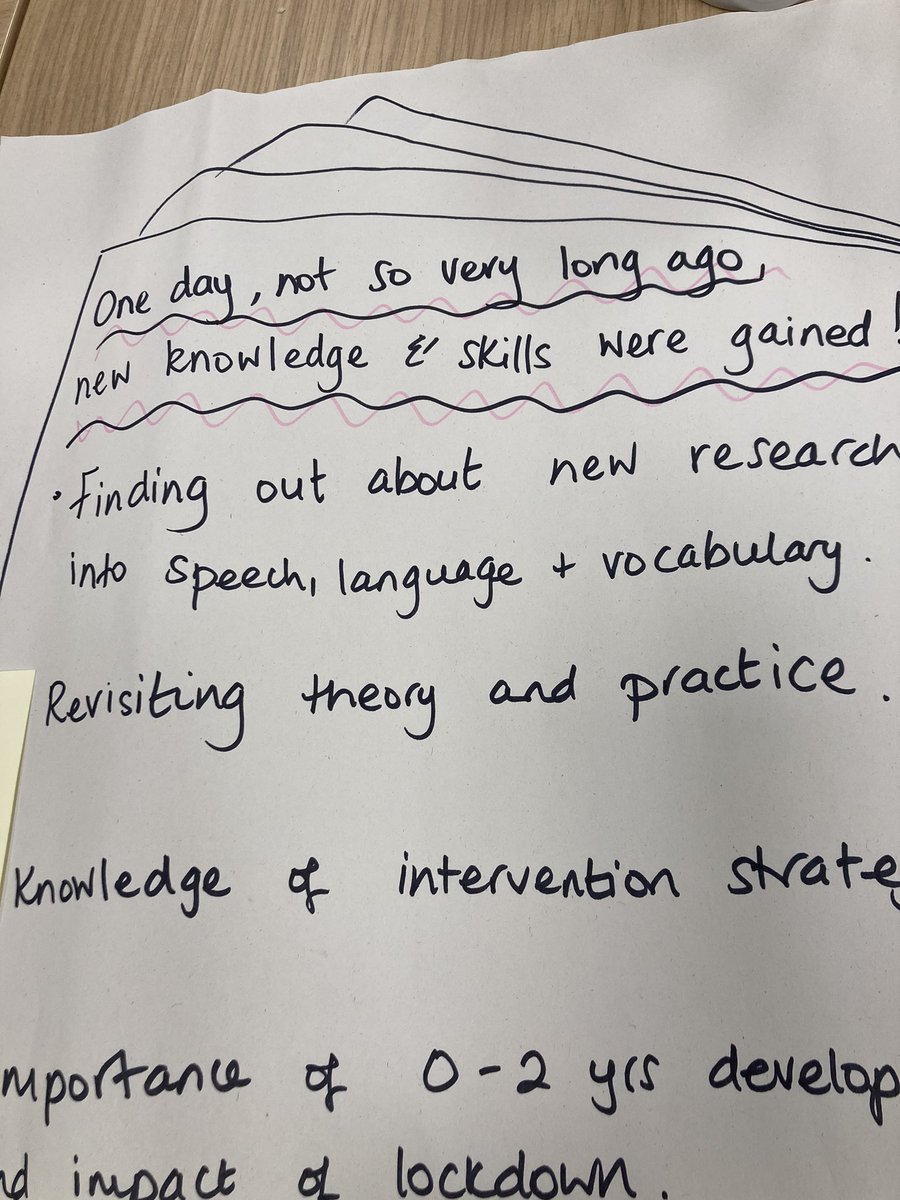 One day, not so very long ago,
new knowledge & skills were gained!
• Finding out about new research
into speech, language + vocabulary.
Revisiting theory and practice.
Knowledge of intervention strate
mportance of 0-2 yrs develop
nd impact of lockdown.